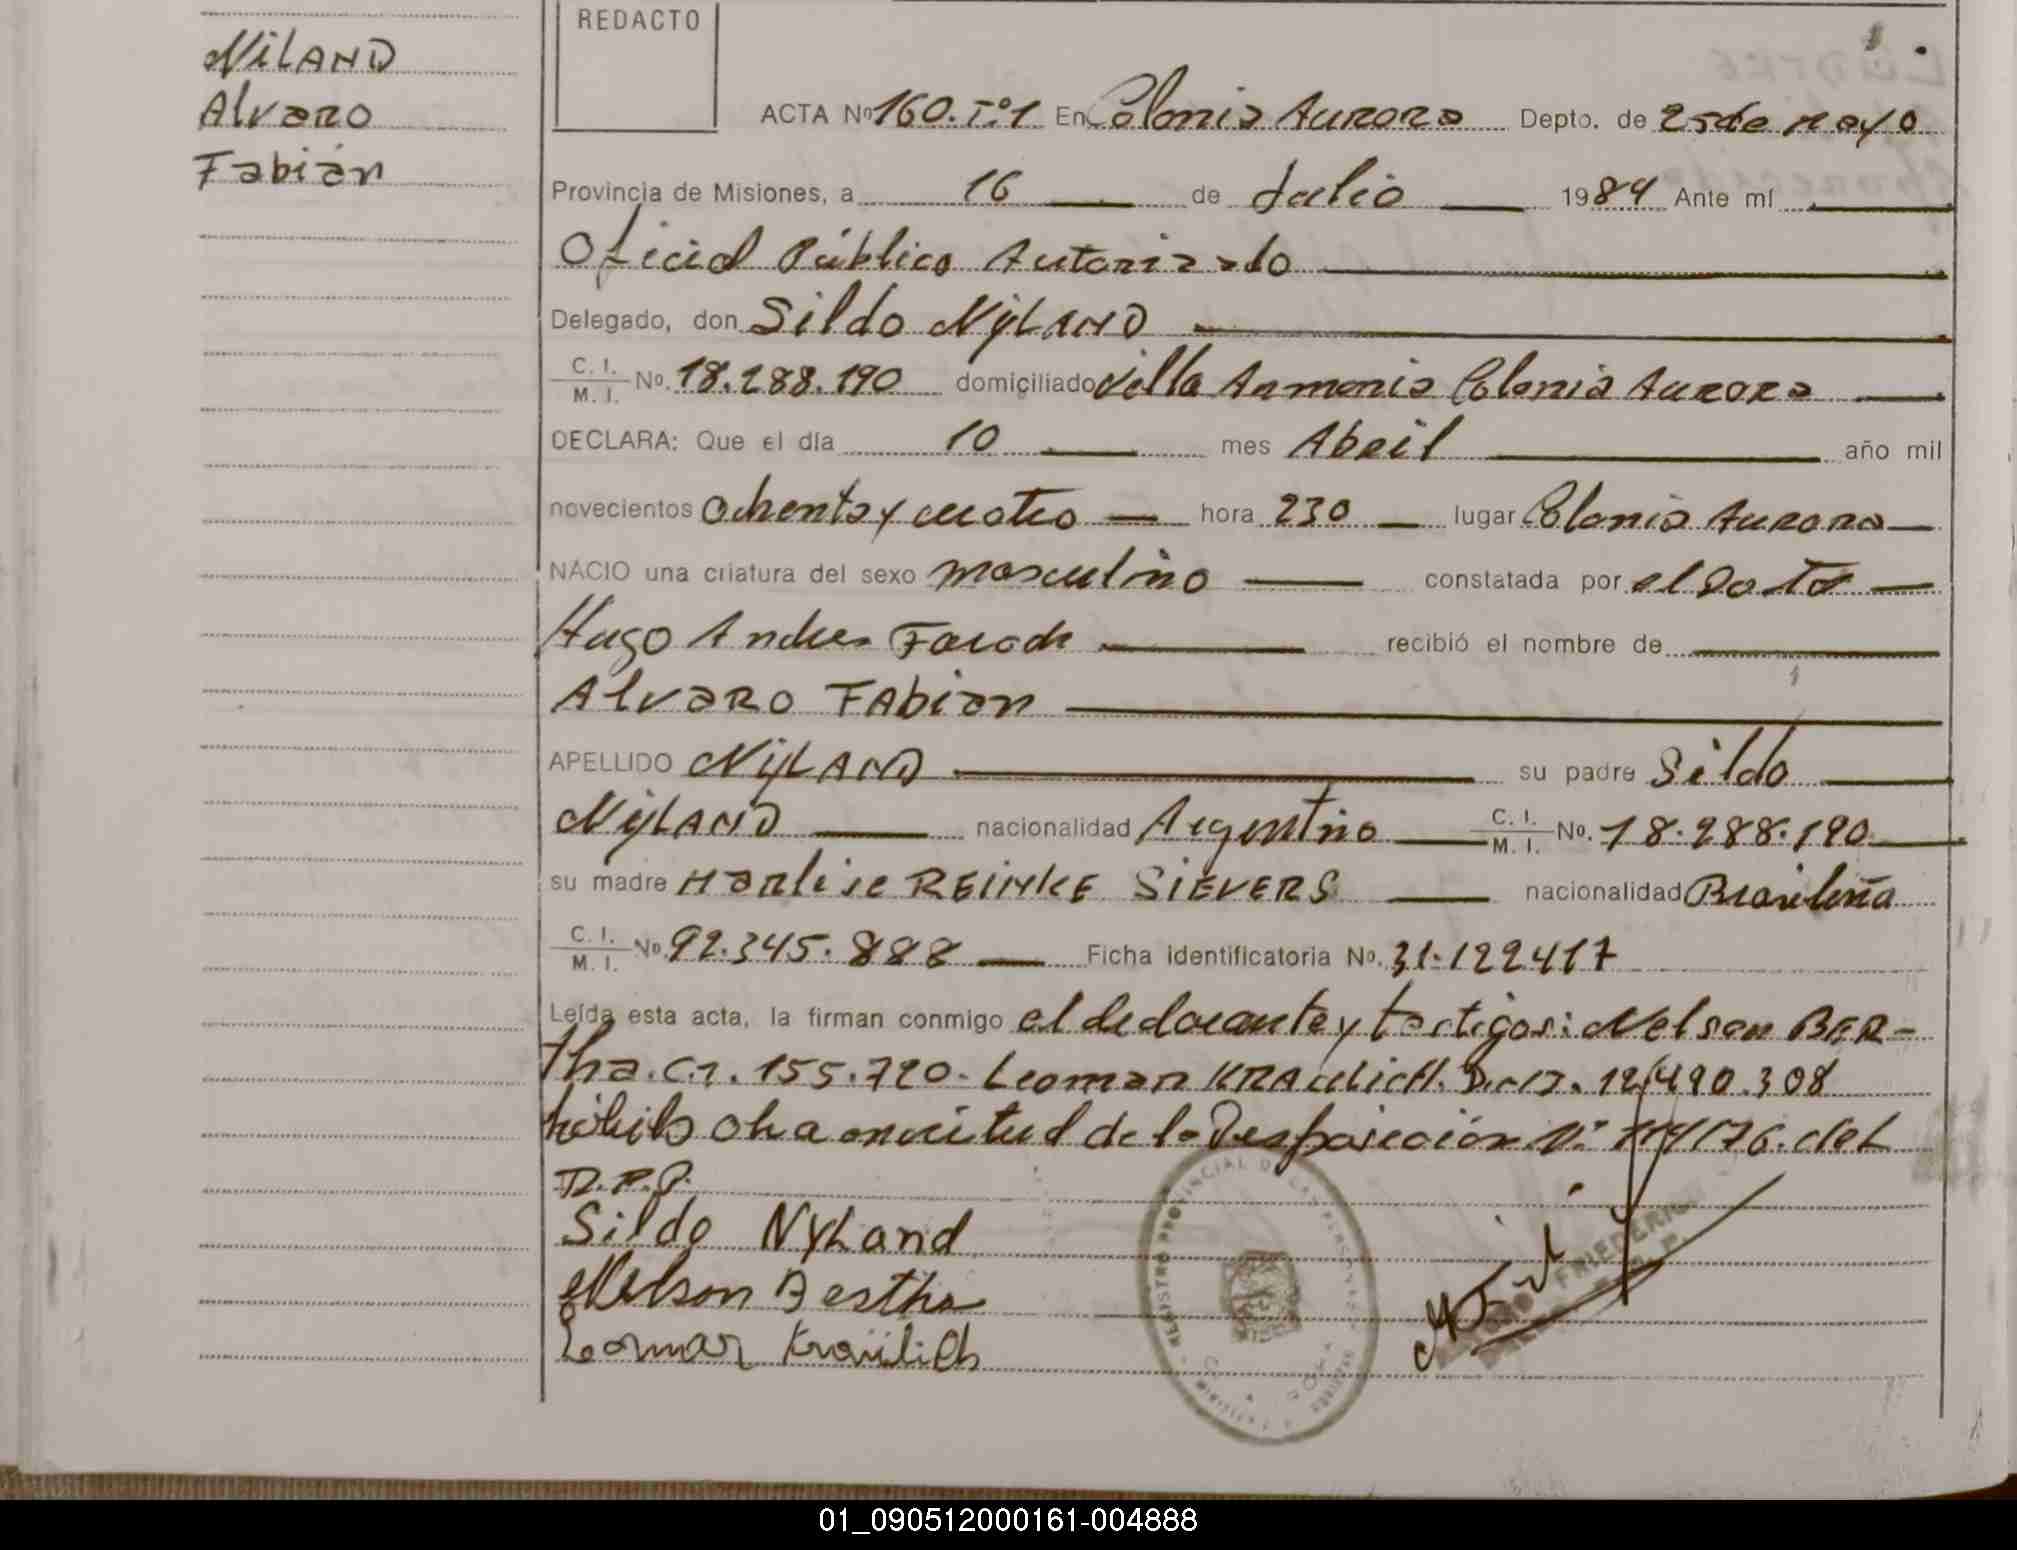 NiLAND
Alvaro
Fabián
REDACTO
ACTA Nº 160.Tº1 En Colonia Aurora Depto. de 25 de Mayo
Provincia de Misiones, a 16 de Julio 1984 Ante mí
Oficial Público Autorizado
Delegado, don Sildo NyLAND
C. I. / M. I. No. 18.288.190 domiciliado Villa Armonia Colonia Aurora
DECLARA: Que el día 10 mes Abril año mil
novecientos ochenta y cuatro hora 230 lugar Colonia Aurora
NACIO una criatura del sexo masculino constatada por el Doctor
Hugo Andres recibió el nombre de
Alvaro FAbian
APELLIDO NyLAND su padre Sildo
NyLAND nacionalidad Argentino C. I. / M. I. No. 18.288.190
su madre Marlise REINKE SIEVERS nacionalidad Brasileña
C. I. / M. I. No. 92.345.888 Ficha identificatoria No. 31.122417
Leída esta acta, la firman conmigo el declarante y testigos: Nelson BER-
tha. C.I. 155.720. Leomar KRAULICH. D.N.I. 12.490.308
de la del
D.P.P.
Sildo NyLand
Nelson Bertha
Leomar Kraülich
REGISTRO PROVINCIAL DE LAS PERSONAS
FRIEDERICH
01_090512000161-004888